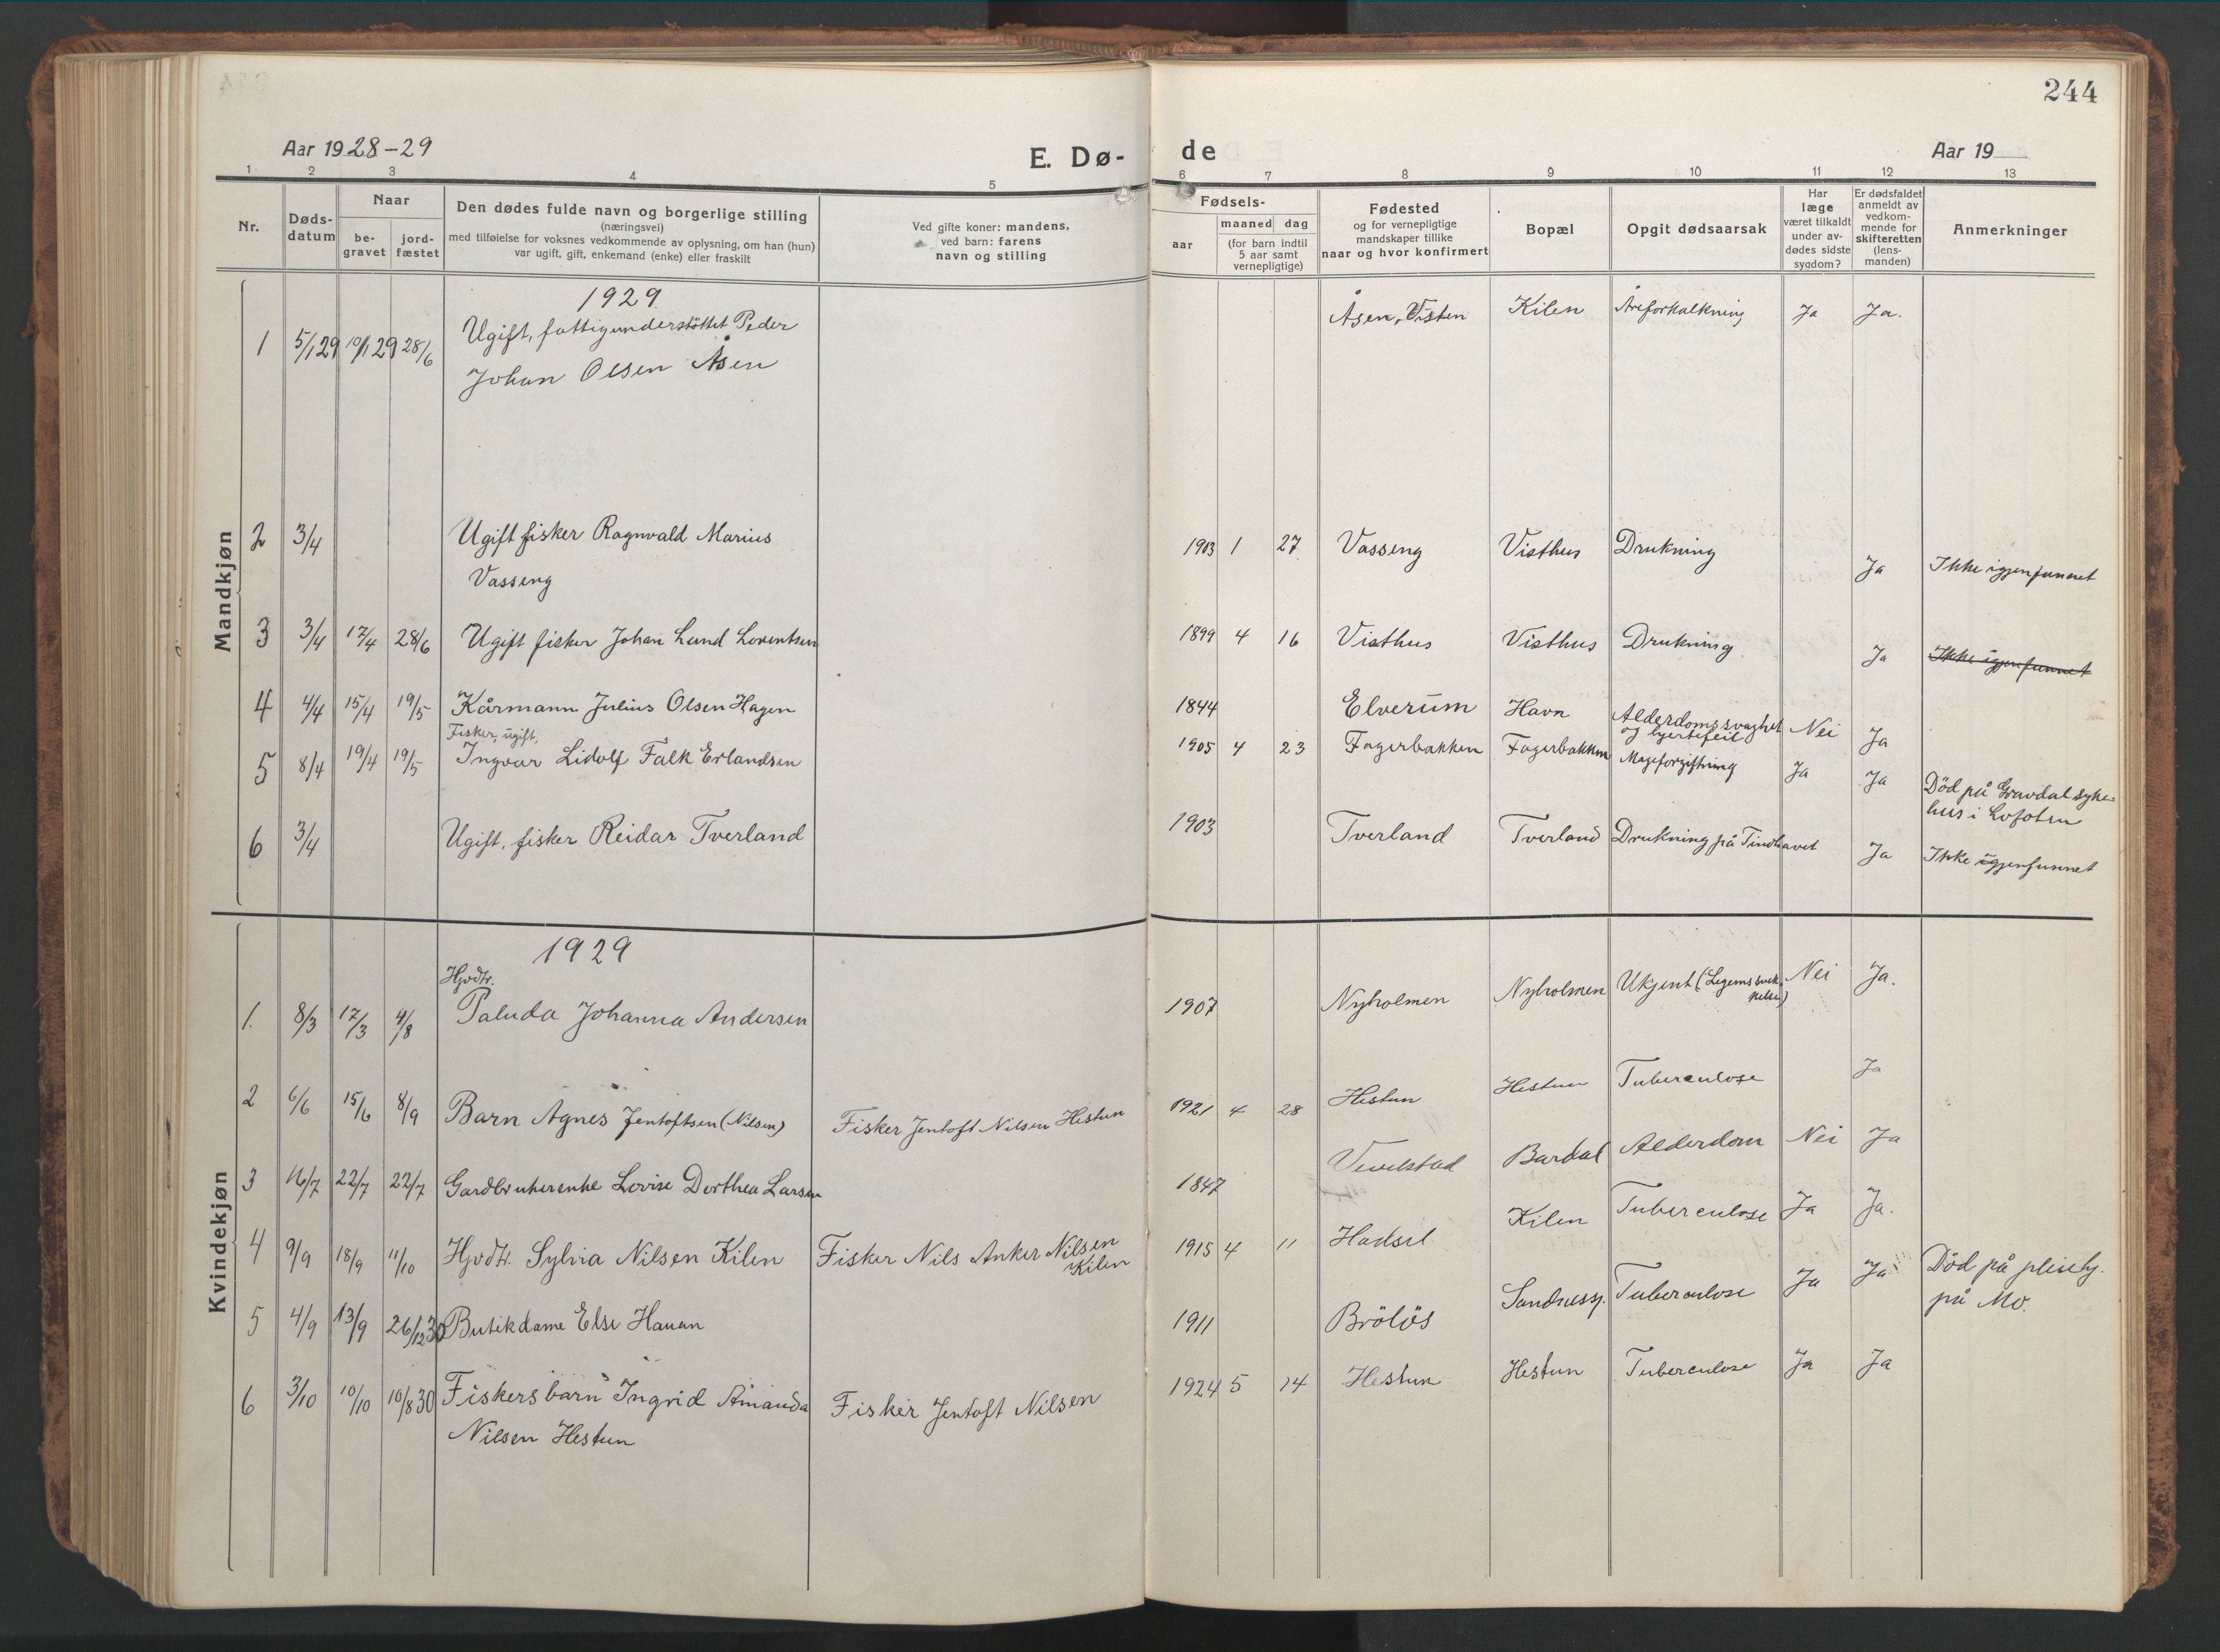 244
Aar 1928-29
E. Dø-
de
Aar 19
1 2 3 4 5 6 7 8 9 10 11 12 13
Nr.
Døds-
datum
Naar
be-
gravet
jord-
fæstet
Den dødes fulde navn og borgerlige stilling
(næringsvei)
med tilføielse for voksnes vedkommende av oplysning, om han (hun)
var ugift, gift, enkemand (enke) eller fraskilt
Ved gifte koner: mandens,
ved barn: farens
navn og stilling
Fødsels-
aar
maaned dag
(for barn indtil
5 aar samt
vernepligtige)
Fødested
og for vernepligtige
mandskaper tillike
naar og hvor konfirmert
Bopæl
Opgit dødsaarsak
Har
læge
været tilkaldt
under av-
dødes sidste
sygdom?
Er dødsfaldet
anmeldt av
vedkom-
mende for
skifteretten
(lens-
manden)
Anmerkninger
Mandkjøn
1929
1 5/1 29 10/1 29 28/6 Ugift, fattigunderstöttet Peder Åsen, Visten Kilen Åreforkalkning Ja Ja.
Johan Olsen Åsen
2 3/4 Ugift fisker Ragnvald Marius 1903 1 27 Vasseng Visthus Drukning Ja Ikke igjenfunnet
Vasseng
3 3/4 17/4 28/6 Ugift fisker Johan Lund Lorentsen 1899 4 16 Visthus Visthus Drukning Ja Ikke igjenfunnet
4 4/4 15/4 19/5 Kårmann Julius Olsen Hagen 1844 Elverum Havn Alderdomssvaghet Nei Ja
og hjertefeil
Fisker, ugift,
5 8/4 19/4 19/5 Ingvar Lidolf Falk Erlandsen 1905 4 23 Fagerbakken Fagerbakken Mageforgiftning Ja Ja Död på Gravdal syke-
hus i Lofoten
6 3/4 Ugift, fisker Reidar Tverland 1903 Tverland Tverland Drukning på Tindhavet Ja Ikke igjenfunnet
Kvindekjøn
1929
Hjvdtr.
1. 8/3 17/3 4/8 Paluda Johanna Andersen 1907 Nyholmen Nyholmen Ukjent (Legemssvek- Nei Ja.
kelse)
2 6/6 15/6 8/9 Barn Agnes Jentoftsen (Nilsen) Fisker Jentoft Nilsen Hestun 1921 4 28 Hestun Hestun Tuberculose Ja
3 16/7 22/7 22/7 Gardbrukerenke Lovise Dorthea Larsen 1847 Vevelstad Bardal Alderdom Nei Ja
4 9/9 18/9 11/10 Hjvdtr. Sylvia Nilsen Kilen Fisker Nils Anker Nilsen 1915 4 11 Hadsel Kilen Tuberculose Ja Ja.
Kilen
5 4/9 13/9 26/12 30 Butikdame Else Hauan 1911 Brölös Sandnessj. Tuberculose Ja Ja Död på pleiehj.
på Mo.
6 3/10 10/10 10/8 30 Fiskersbarn Ingrid Amanda Fisker Jentoft Nilsen 1924 5 14 Hestun Hestun Tuberculose Ja Ja
Nilsen Hestun